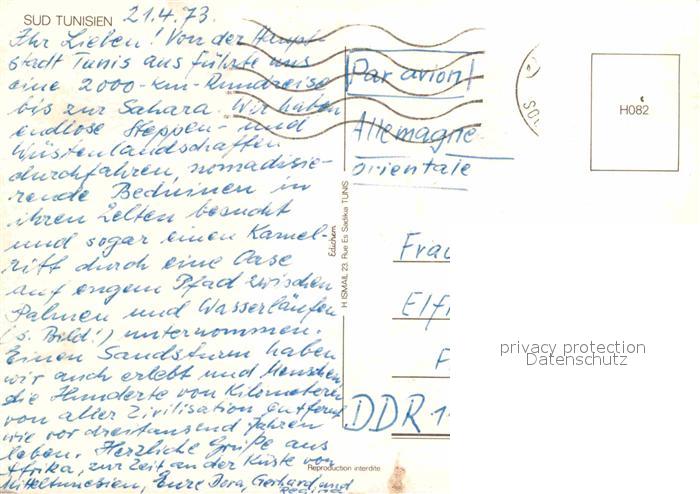 SUD TUNISIEN 21.4.73.
Ihr Lieben! Von der Haupt-
stadt Tunis aus führte uns
eine 2000-km-Rundreise
bis zur Sahara. Wir haben
endlose Steppen- und
Wüstenlandschaften
durchfahren, nomadisie-
rende Beduinen in
ihren Zelten besucht
und sogar einen Kamel-
ritt durch eine Oase
auf engem Pfad zwischen
Palmen und Wasserläufen
(s. Bild!) unternommen.
Einen Sandsturm haben
wir auch erlebt und Menschen,
die Hunderte von Kilometern
von aller Zivilisation entfernt
wie vor dreitausend Jahren
leben. Herzliche Grüße aus
Afrika, zur Zeit an der Küste von
Mitteltunesien, Eure Dora, Gerhard und
Regina
Edichem
H ISMAIL 23, Rue Es Sadikia TUNIS
Reproduction interdite
Par avion
Allemagne
orientale
Frau
Elf
F
DDR 1
H082
privacy protection
Datenschutz